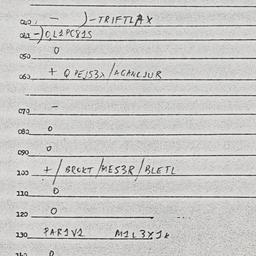 040 - )-TRIFTLAX
041 -)0,L1PC81S
0
050
+ Q PEJ53X/ACANCJUR
060
070 -
080 0
090 0
100 +/BROKT/MES3R/BLETL
110 0
120 0
130 PAR1V1 M1L3X18
140 0